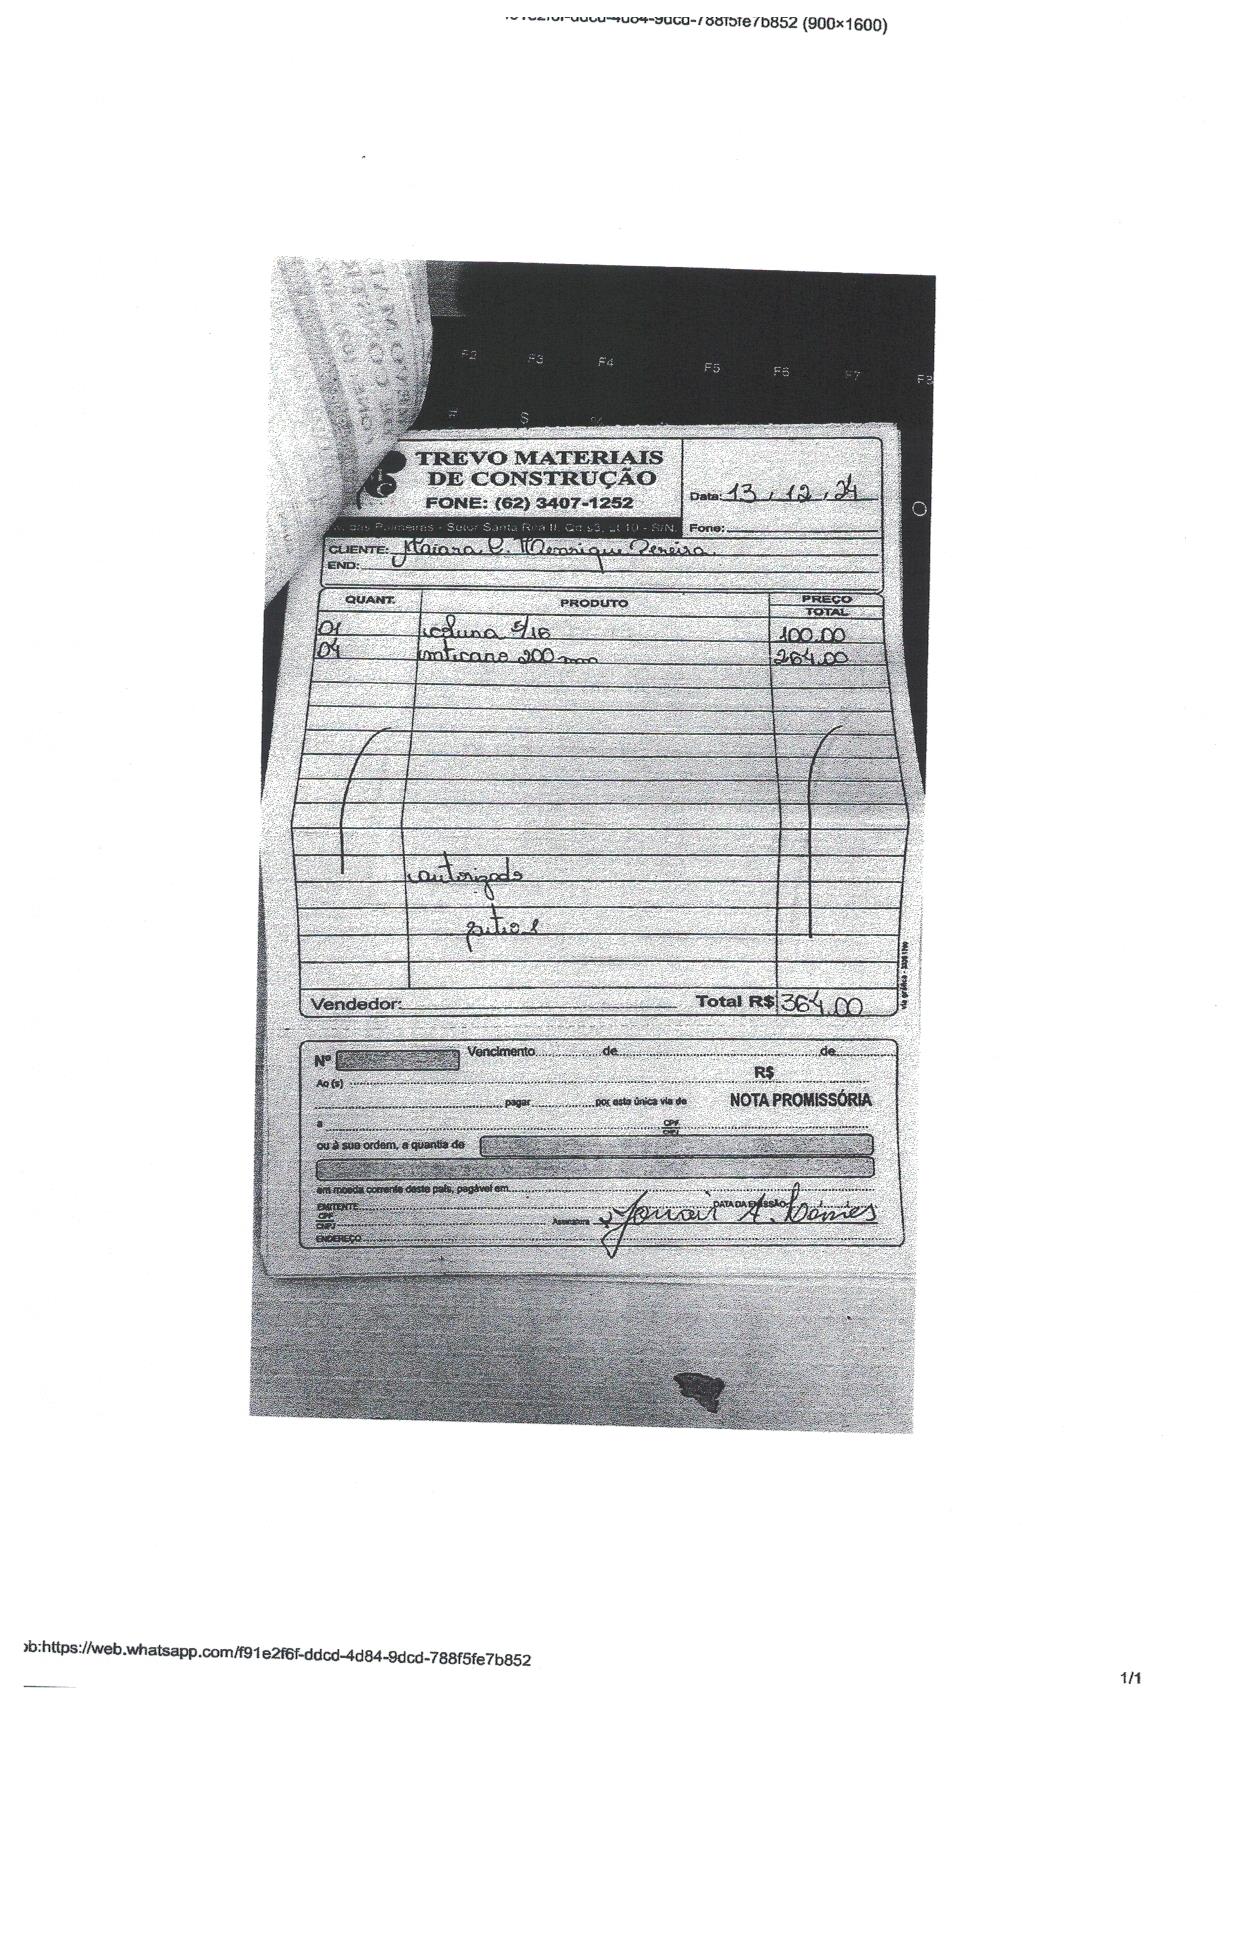 788f5fe7b852 (900×1600)
F2 F3 F4 F5 F6 F7 F8
TREVO MATERIAIS
DE CONSTRUÇÃO
FONE: (62) 3407-1252
das Palmeiras - Setor Santa Rita II, Qd 53, Lt 10 - S/N.
Data: 13, 12, 24
Fone:
CLIENTE: Maiara C. Henrique Pereira.
END:
QUANT. PRODUTO PREÇO
TOTAL
01 coluna 5/16 100.00
04 200 mm 264.00
autorizado
Vendedor: Total R$ 364.00
Nº Vencimento de de
Ao(s) R$
pagar por esta única via de NOTA PROMISSÓRIA
a CPF
CNPJ
ou à sua ordem, a quantia de
em moeda corrente deste país, pagável em
EMITENTE DATA DA EMISSÃO
CPF
CNPJ Assinatura
ENDEREÇO
ob:https://web.whatsapp.com/f91e2f6f-ddcd-4d84-9dcd-788f5fe7b852
1/1